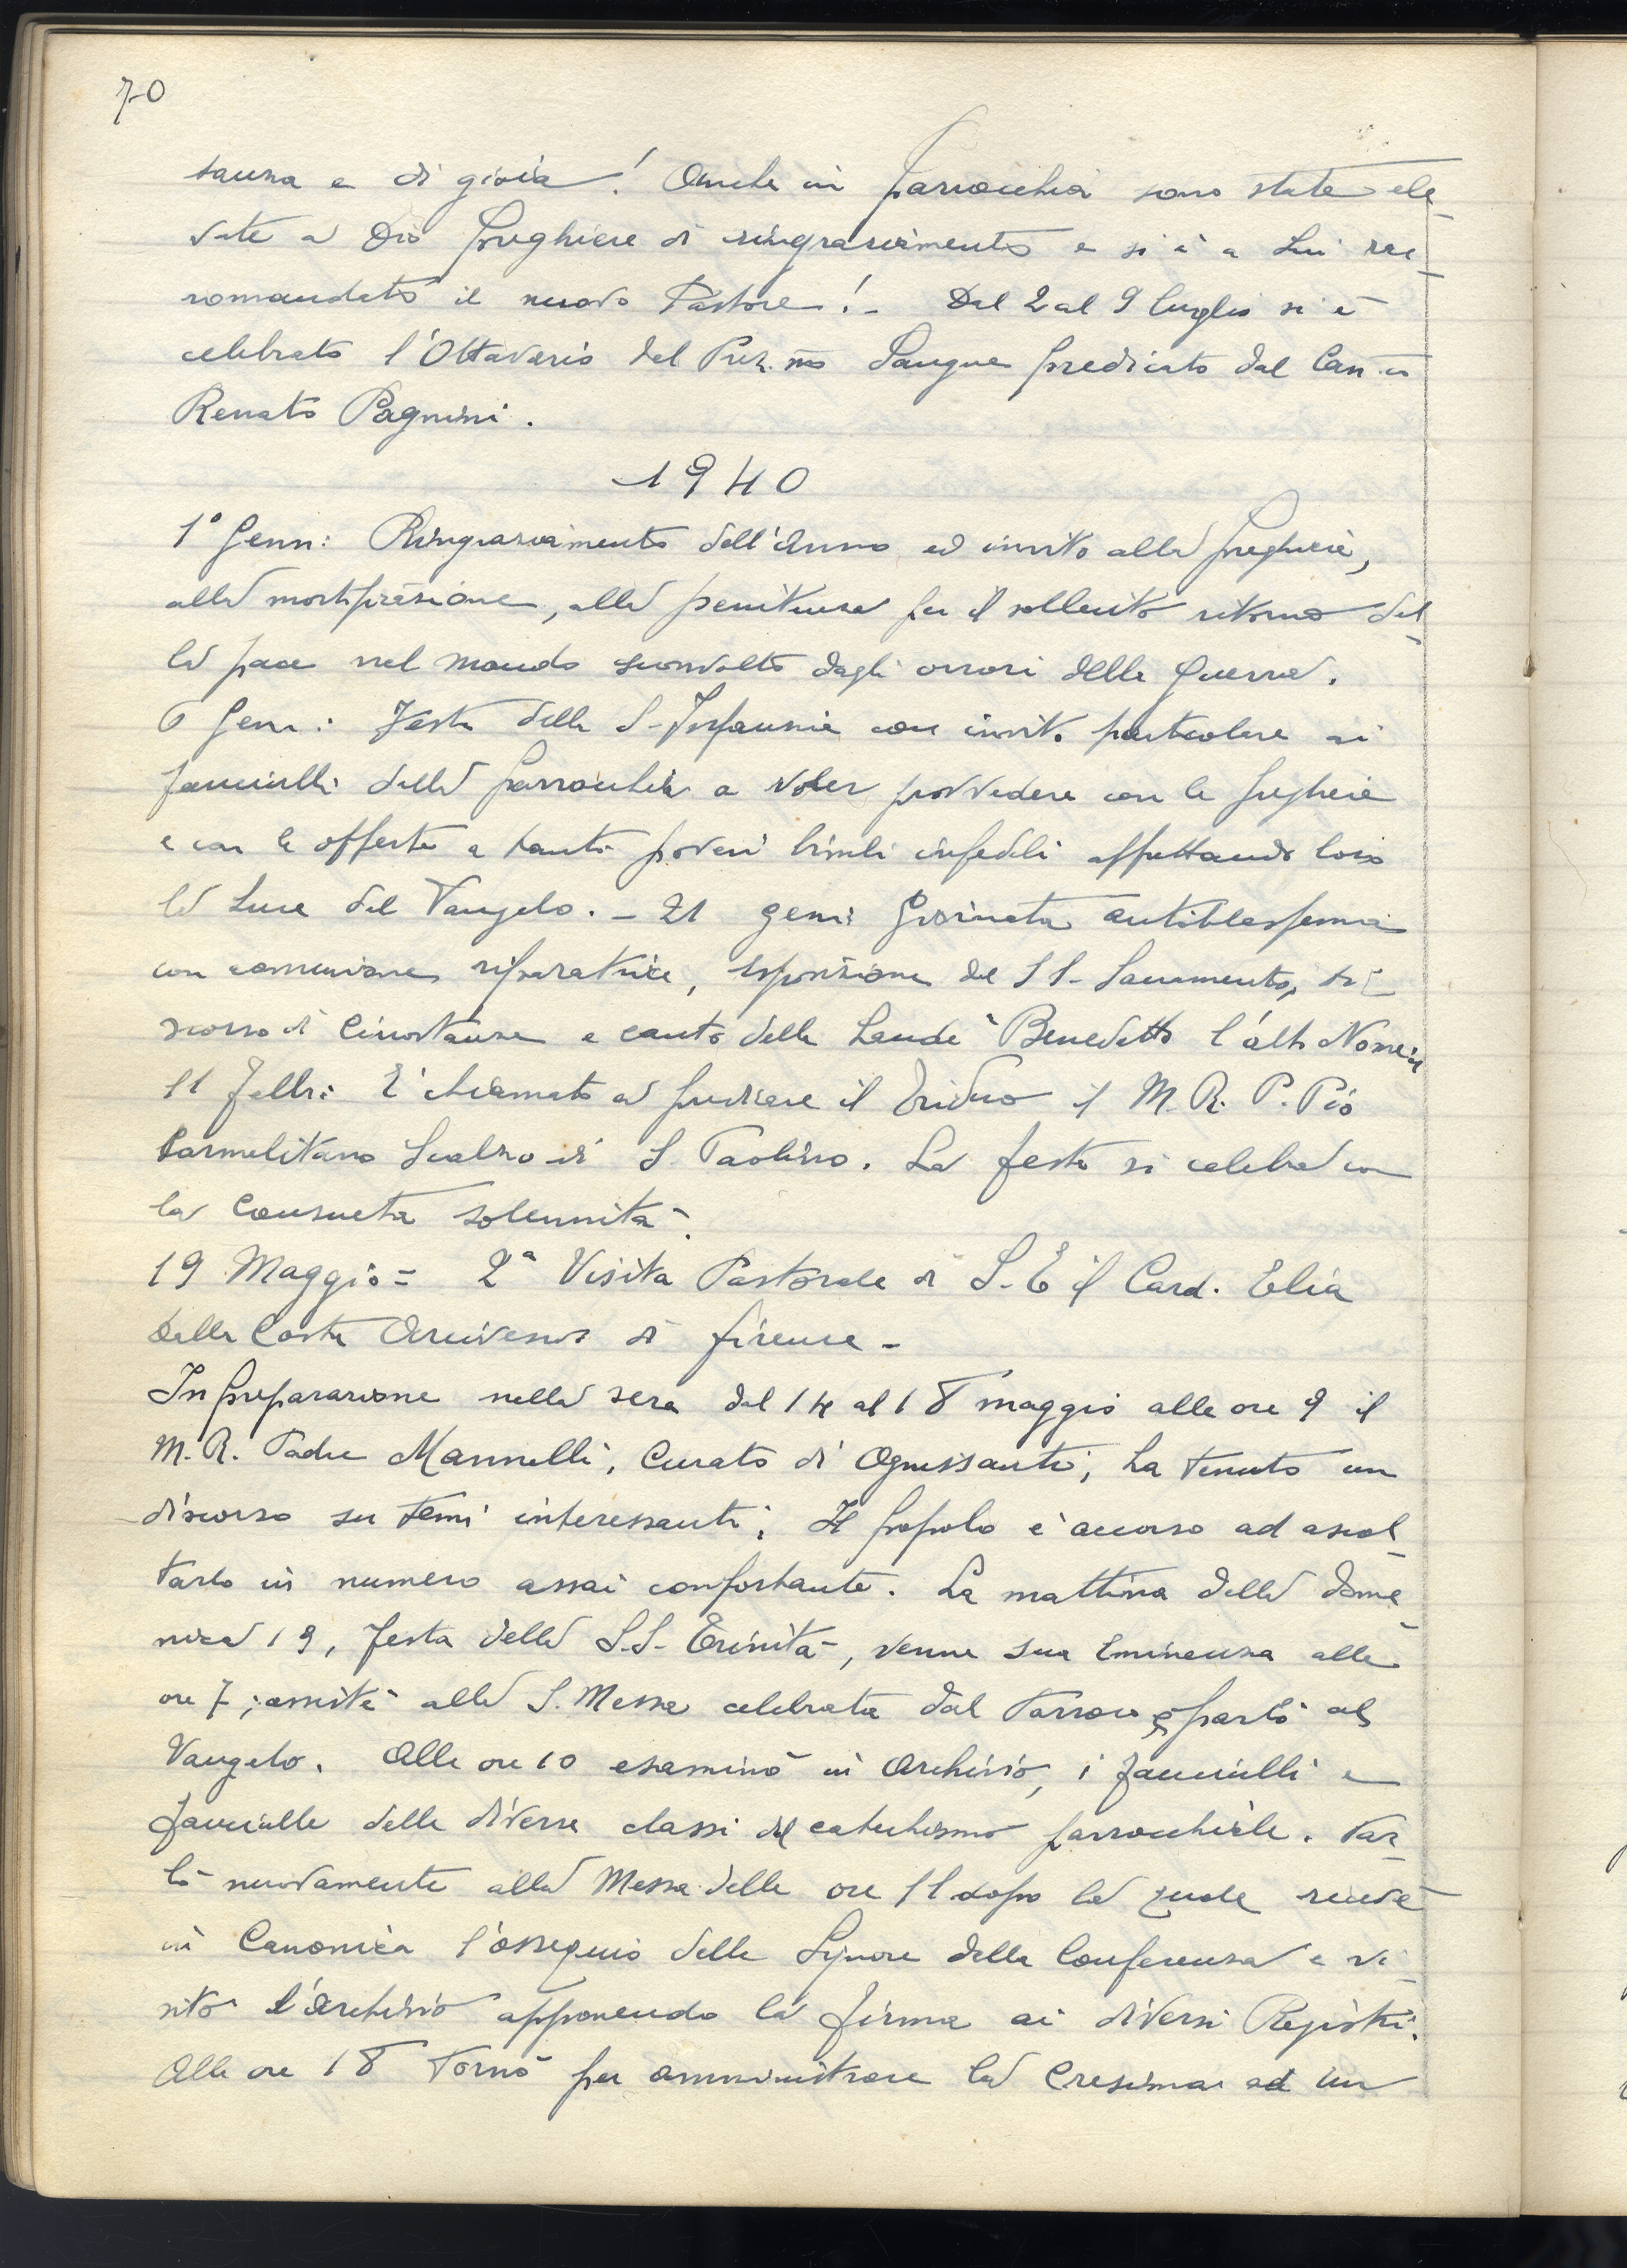 70
sanza e di gioia! Anche in parrocchia sono state ele-
vate a Dio preghiere di ringraziamento e si è a Lui rac-
comandato il nuovo Pastore! - Dal 2 al 9 luglio si è
celebrato l'Ottavario del Prez.mo Sangue predicato dal Can.co
Renato Pagnini.
1940
1° Genn: Ringraziamento dell'Anno ed invito alla preghiera,
alla mortificazione, alla penitenza per il sollecito ritorno del-
la pace nel mondo sconvolto dagli orrori della guerra.
6 Genn: Festa della S. Infanzia con invito particolare ai
fanciulli della parrocchia a voler provvedere con le preghiere
e con le offerte a tanti poveri bimbi infedeli affrettando loro
la Luce del Vangelo. - 21 genn: Giornata antiblasfema
con comunione riparatrice, esposizione del SS. Sacramento, di-
scorso di circostanza e canto della Laude "Benedetto l'alto Nome"
11 Febbr: È chiamato a predicare il Triduo il M. R. P. Pio
Carmelitano Scalzo di S. Paolino. La festa si celebra con
la consueta solennità.
19 Maggio = 2ª Visita Pastorale di S. E il Card. Elia
Dalla Costa Arcivescovo di Firenze -
In preparazione nella sera dal 14 al 18 maggio alle ore 9 il
M. R. Padre Mannelli, Curato di Ognissanti, ha tenuto un
discorso su temi interessanti; Il popolo è accorso ad ascol-
tarlo in numero assai confortante. La mattina della dome-
nica 19, festa della S.S. Trinità, venne Sua Eminenza alle
ore 7; assistè alla S. Messa celebrata dal Parroco e parlò al
Vangelo. Alle ore 10 esaminò in Archivio, i fanciulli e
fanciulle delle diverse classi del catechismo parrocchiale. Par-
lò nuovamente alla Messa delle ore 11 dopo la quale ricevè
in Canonica l'ossequio delle Signore della Conferenza e vi-
sitò l'archivio apponendo la firma ai diversi Registri.
Alle ore 18 tornò per amministrare la Cresima ad un